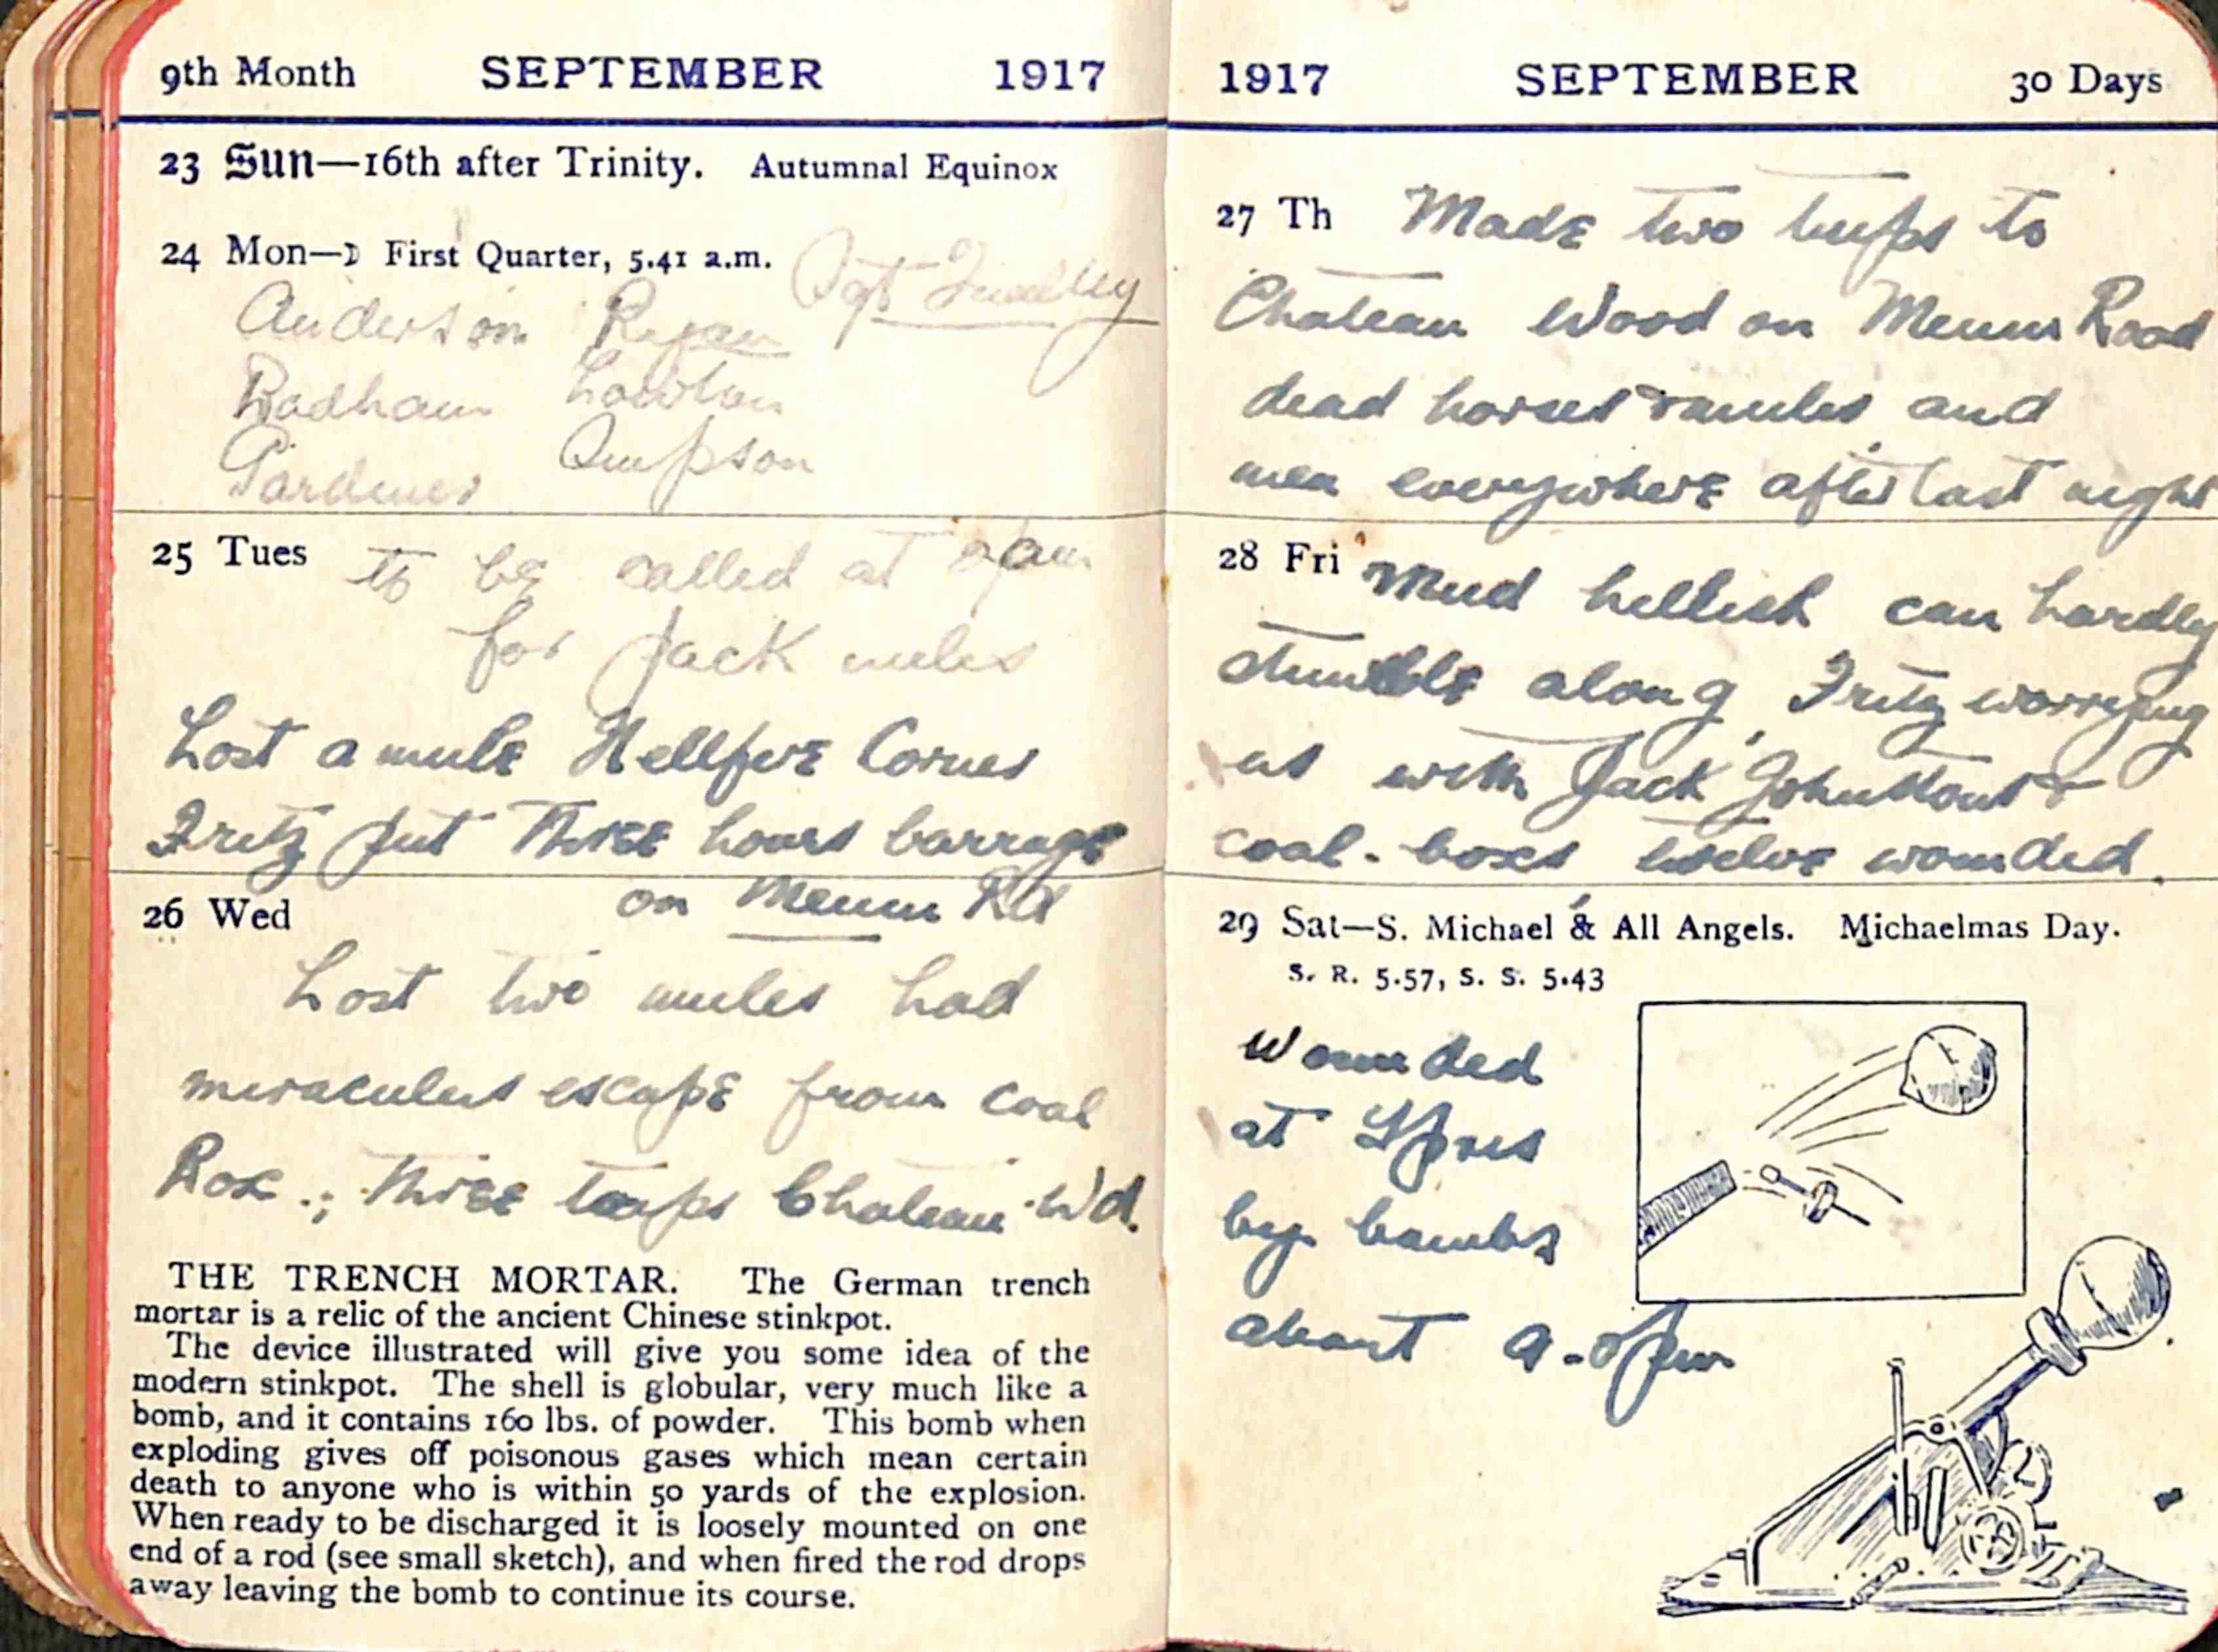 9th Month SEPTEMBER 1917
23 Sun—16th after Trinity. Autumnal Equinox
24 Mon—☽ First Quarter, 5.41 a.m.
Sgt
Anderson Regan
Radham Lawton
Gardener Simpson
25 Tues to be called at
for Jack mules
Lost a mule Hellfire Corner
Fritz put three hours barrage
on Menin Rd
26 Wed
Lost two mules had
miraculus escape from coal
Box.; three trips Chateau Wd.
THE TRENCH MORTAR. The German trench
mortar is a relic of the ancient Chinese stinkpot.
The device illustrated will give you some idea of the
modern stinkpot. The shell is globular, very much like a
bomb, and it contains 160 lbs. of powder. This bomb when
exploding gives off poisonous gases which mean certain
death to anyone who is within 50 yards of the explosion.
When ready to be discharged it is loosely mounted on one
end of a rod (see small sketch), and when fired the rod drops
away leaving the bomb to continue its course.
1917 SEPTEMBER 30 Days
27 Th Made two trips to
Chateau Wood on Menin Road
dead horses & mules and
men everywhere after last night
28 Fri Mud hellish can hardly
stumble along, Fritz worrying
us with Jack Johnstons &
coal-boxes twelve wounded.
29 Sat—S. Michael & All Angels. Michaelmas Day.
S. R. 5.57, S. S. 5.43
Wounded
at Ypres
by bombs
about 9.0 pm